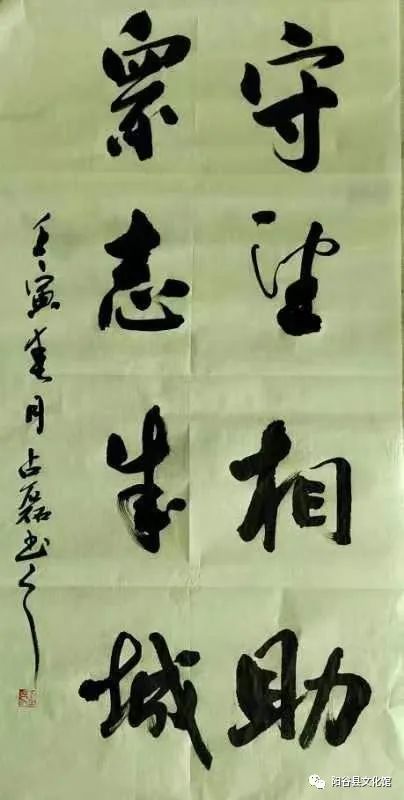 守望相助
眾志成城
壬寅春月占磊书
阳谷县文化馆